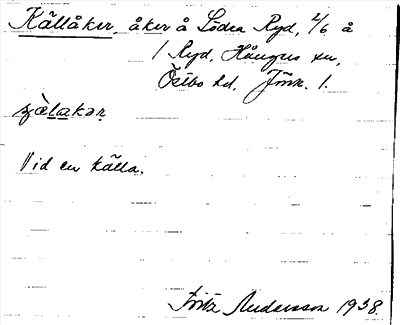 Källåker, åker å Södra Ryd, 2/6 å
1 Ryd, Hångers sn,
Östbo hd, Jönk. l.
Vid en källa.
Fritz Andersson 1938.